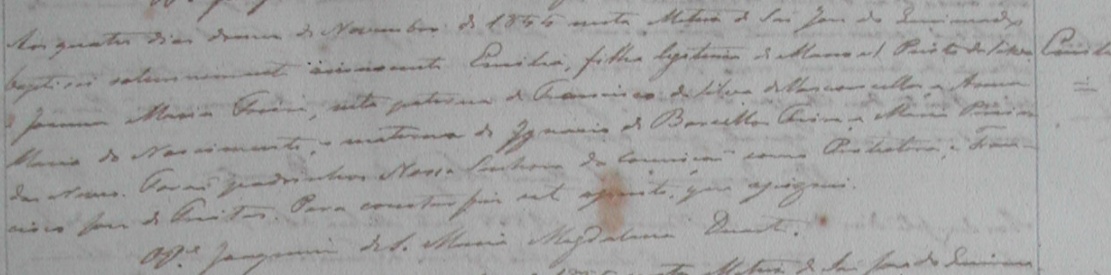 Aos quatro dias do mez de Novembro de 1844 nesta Matriz de São Jose do Queimado
baptisei solemnemente innocente Emilia, filha legitima de Manoel Pinto da Silva
Joanna Maria neta paterna de Francisco da Silva de Vasconcellos e Anna
Maria do Nascimento, e materna de Ignacio de Barcellos e Maria
das Neves. Forão padrinhos Nossa Senhora da Conceição como Protectora, e Fran-
cisco Jose de Freitas. Para constar fiz este assento, que assignei.
Joaquim de S. Maria Magdalena Duarte.
Matriz de São Jose do